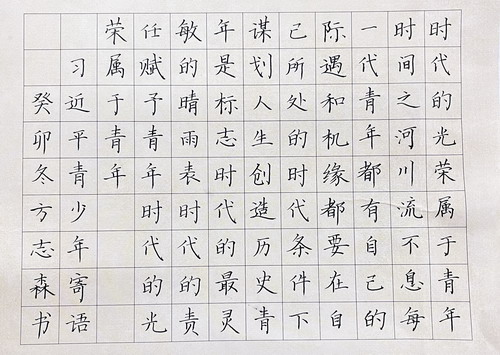 时代的光荣属于青年
时间之河川流不息每
一代青年都有自己的
际遇和机缘都要在自
己所处的时代条件下
谋划人生创造历史青
年是标志时代的最灵
敏的晴雨表时代的责
任赋予青年时代的光
荣属于青年
习近平青少年寄语
癸卯冬方志森书